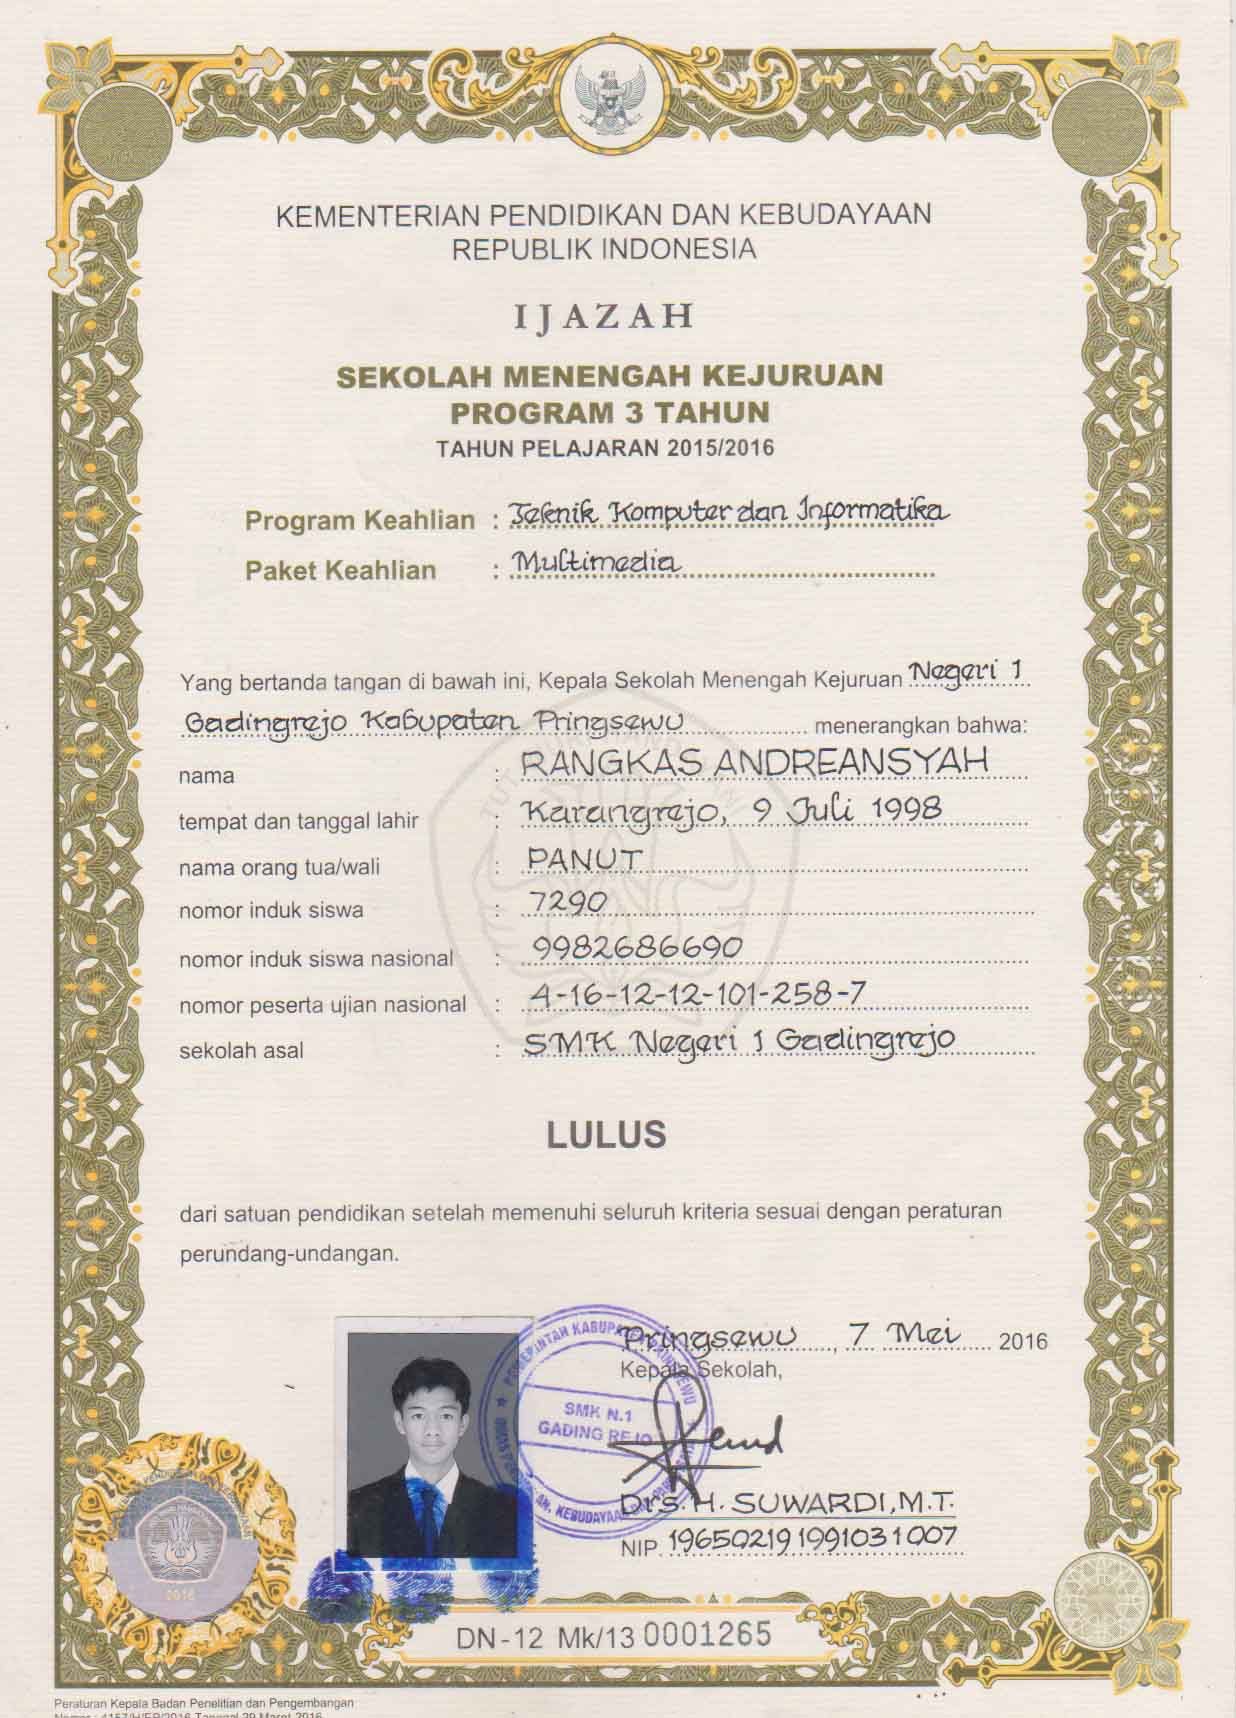 KEMENTERIAN PENDIDIKAN DAN KEBUDAYAAN
REPUBLIK INDONESIA
IJAZAH
SEKOLAH MENENGAH KEJURUAN
PROGRAM 3 TAHUN
TAHUN PELAJARAN 2015/2016
Program Keahlian : Teknik Komputer dan Informatika
Paket Keahlian : Multimedia
Yang bertanda tangan di bawah ini, Kepala Sekolah Menengah Kejuruan Negeri 1
Gadingrejo Kabupaten Pringsewu menerangkan bahwa:
nama : RANGKAS ANDREANSYAH
tempat dan tanggal lahir : Karangrejo, 9 Juli 1998
nama orang tua/wali : PANUT
nomor induk siswa : 7290
nomor induk siswa nasional : 9982686690
nomor peserta ujian nasional : 4-16-12-12-101-258-7
sekolah asal : SMK Negeri 1 Gadingrejo
LULUS
dari satuan pendidikan setelah memenuhi seluruh kriteria sesuai dengan peraturan
perundang-undangan.
Pringsewu, 7 Mei 2016
Kepala Sekolah,
SMK N.1
GADING REJO
Drs. H. SUWARDI, M.T.
NIP. 196502191991031007
2016
DN-12 Mk/13 0001265
Peraturan Kepala Badan Penelitian dan Pengembangan